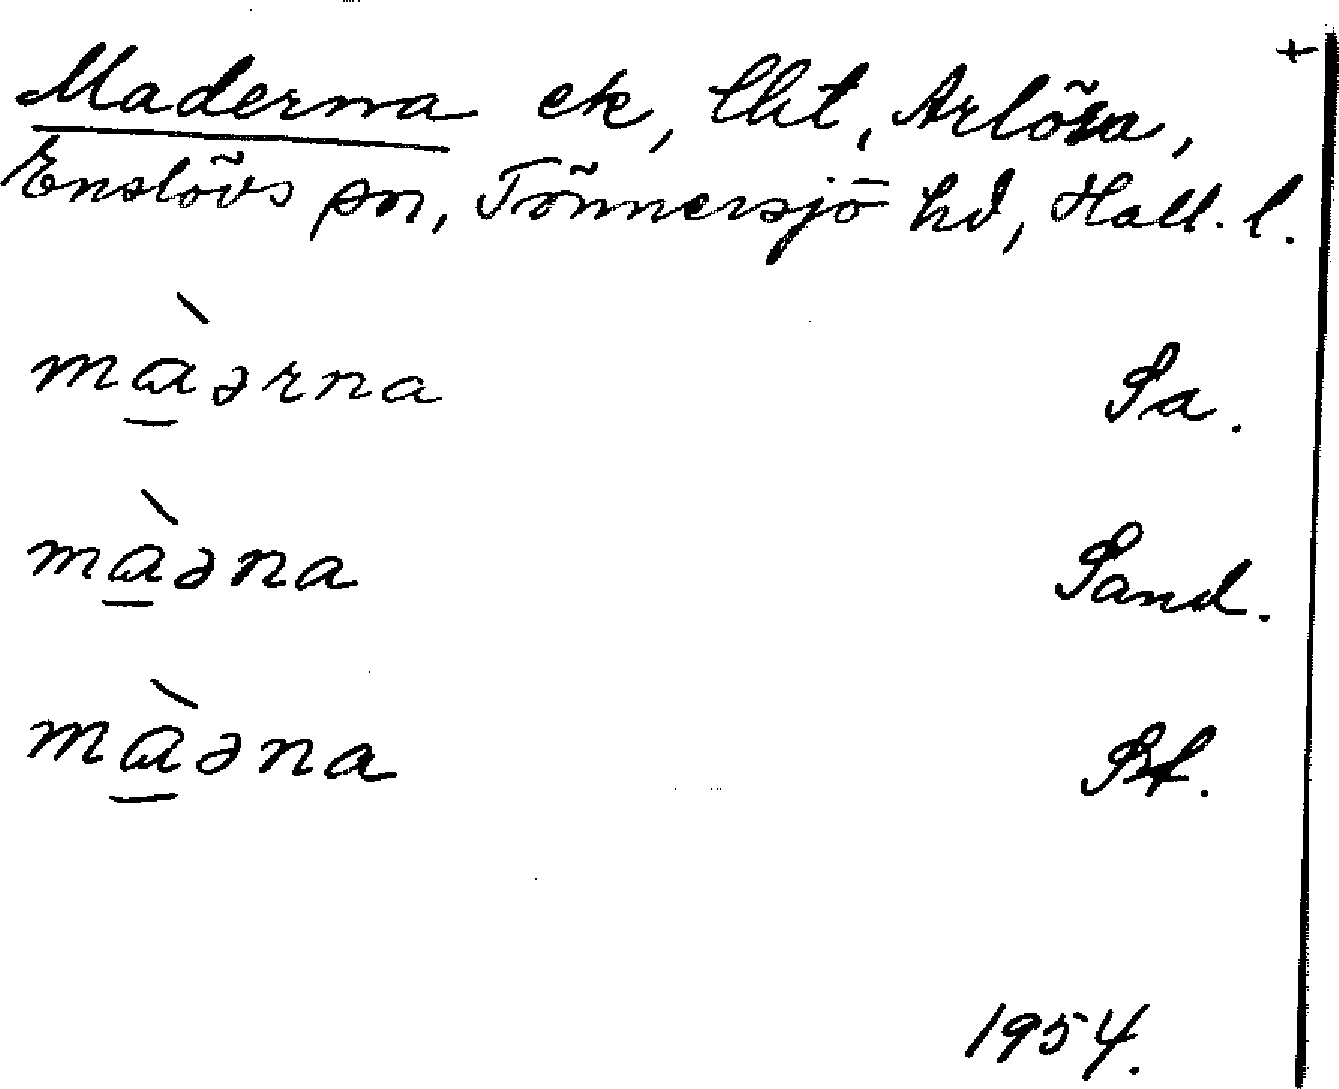 +
Maderna ek, lht, Arlösa,
Enslövs sn, Tönnersjö hd, Hall. l.
mà̱ərna Sa.
mà̱əna Sand.
mà̱əna
1954.